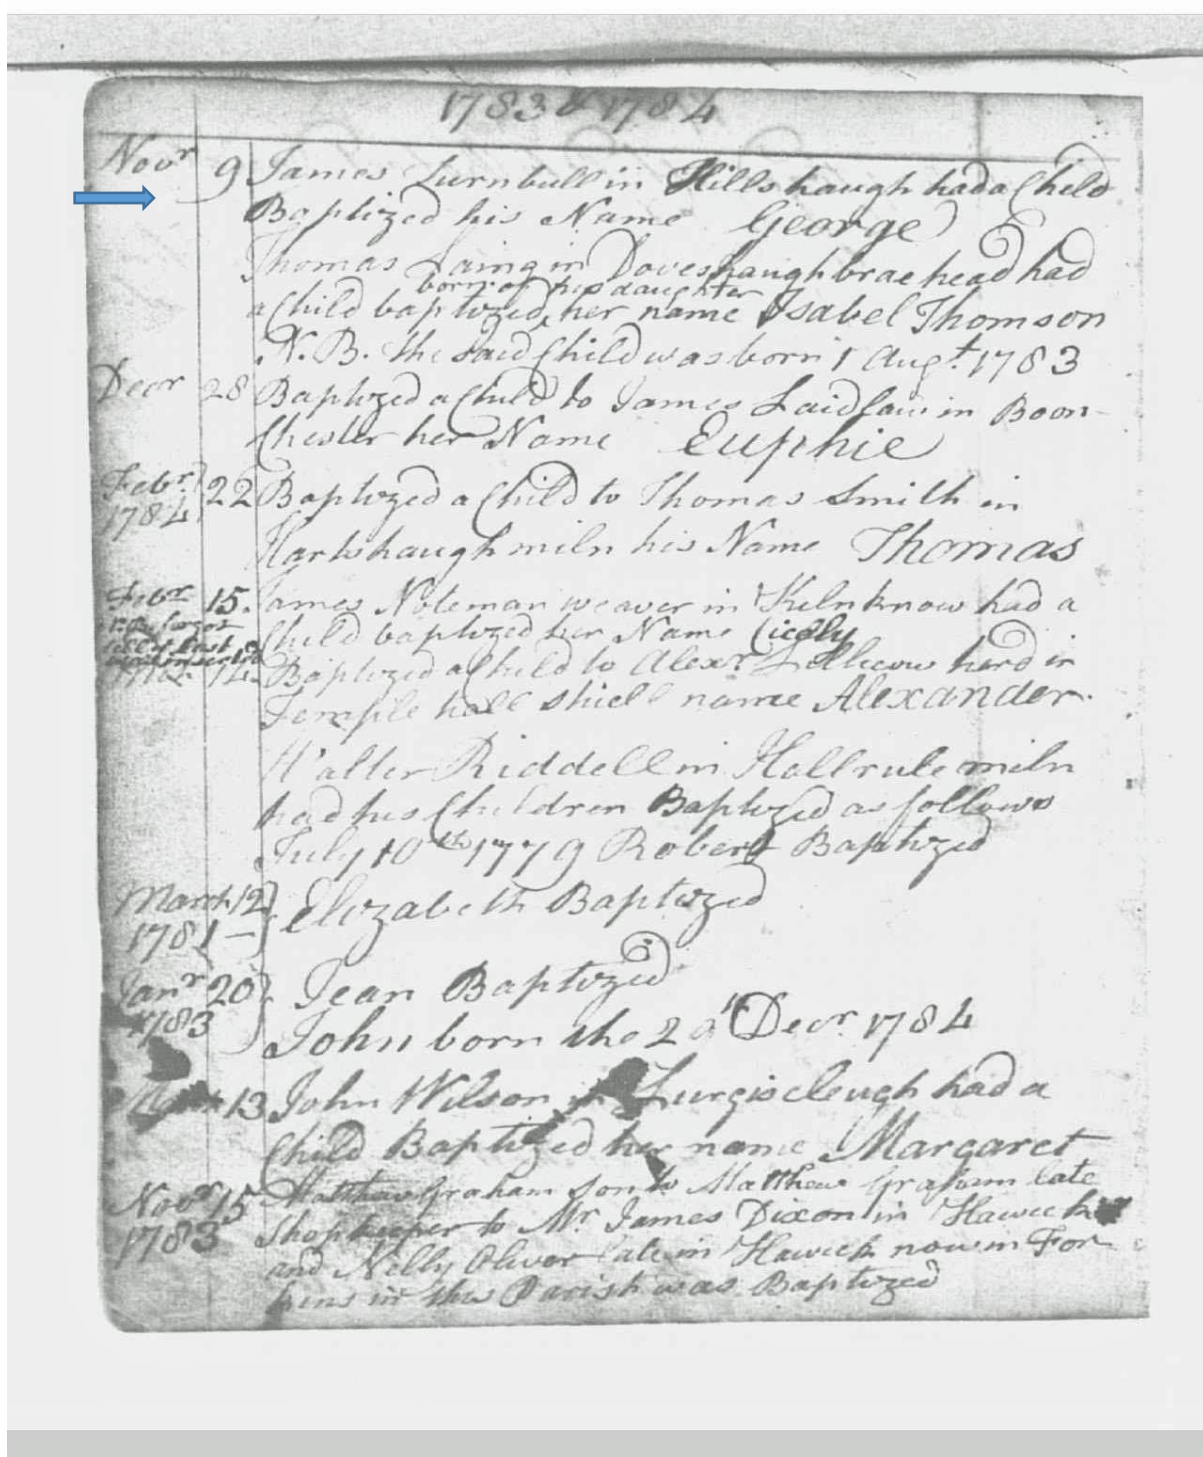 1783 & 1784
Novr 9 James Turnbull in Hillshaugh had a Child
Baptized his Name George
Thomas Laing in Doveshaughbraehead had
born of his daughter
a Child baptized, her name Isabel Thomson
N.B. the said Child was born 1 Augt. 1783
Decr 28 Baptized a Child to James Laidlaw in Bon-
chester her Name Euphie
Febr. 22 Baptized a Child to Thomas Smith in
1784
Harwshaugh miln his Name Thomas
Febr 15. James Noteman weaver in Kilnknow had a
Child baptized her Name Cicely
14. Baptized a Child to Alexr. herd in
Temple hall shiell name Alexander.
Walter Riddell in Hallrule miln
had his Children Baptized as follows
July 10th 1779 Robert Baptized
March 12 Elizabeth Baptized
1781 –
Janr 20 Jean Baptized
1783
John born the Decr. 1784
13 John Wilson in had a
Child Baptized her name Margaret
Novr 15 Matthew Graham son to Matthew Graham late
1783 Shopkeeper to Mr James Dixon in Hawick
and Nelly Oliver late in Hawick now in For-
kins in this Parish was Baptized